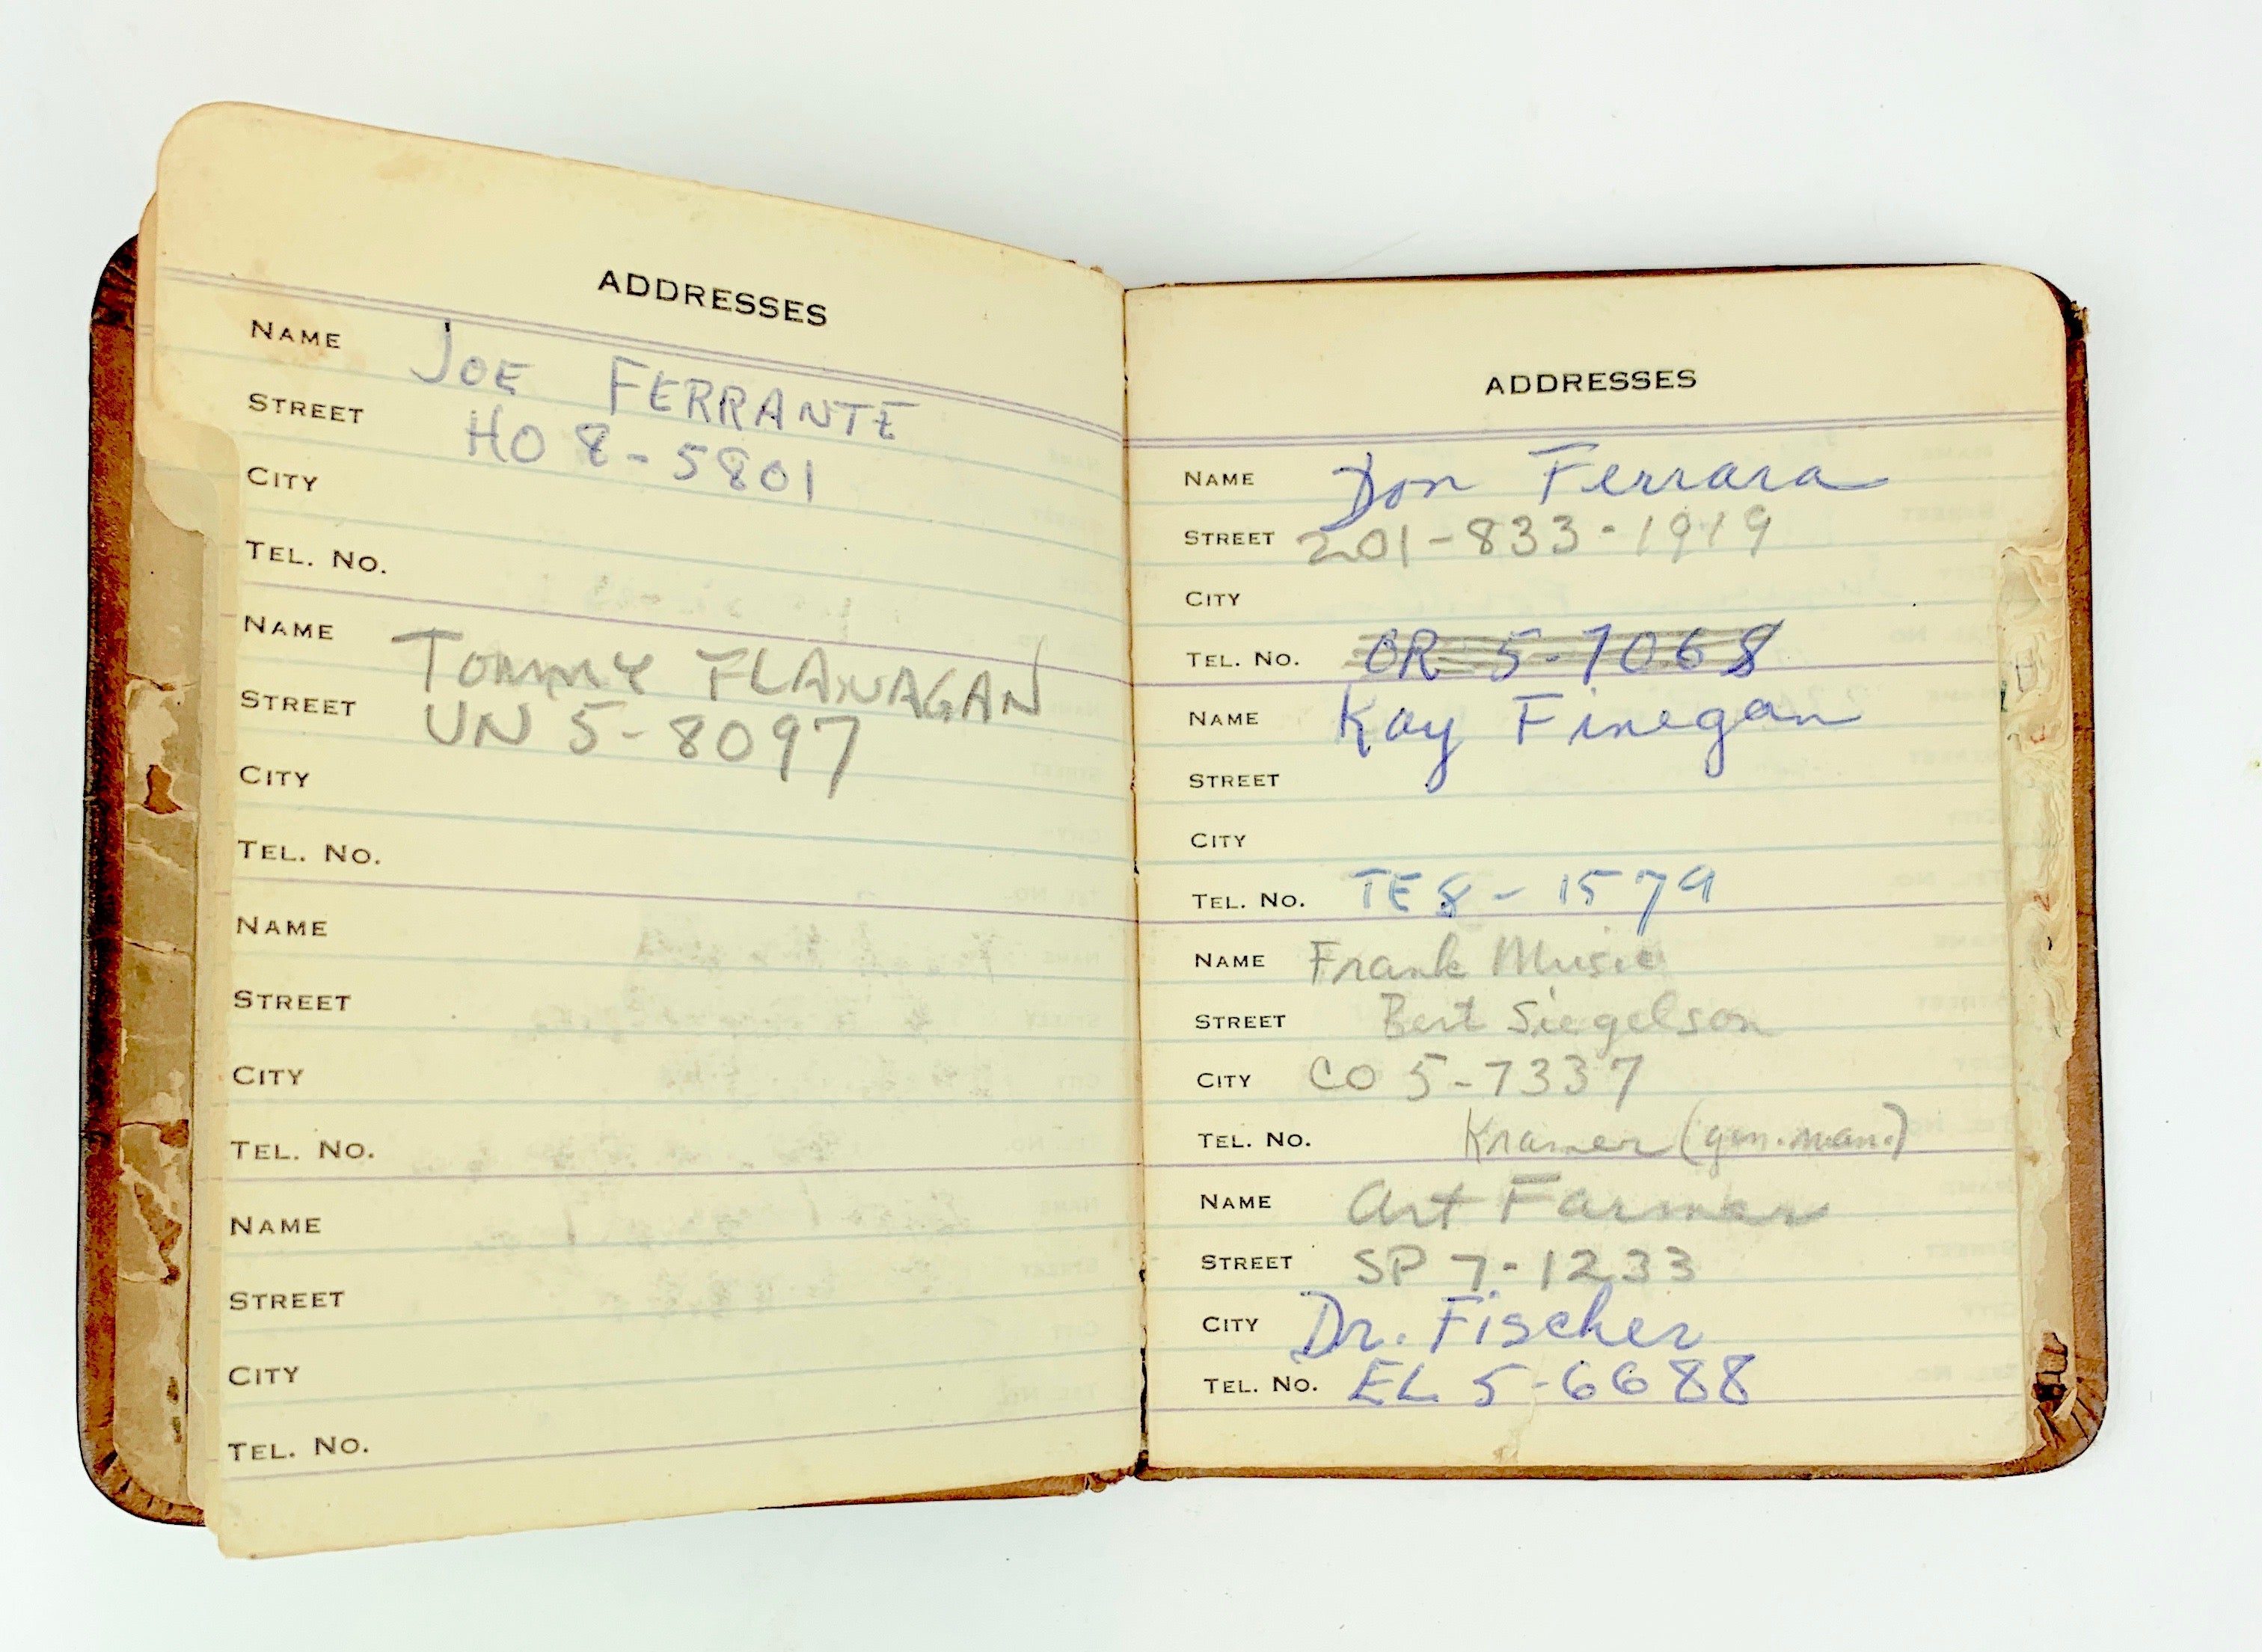 ADDRESSES
NAME JOE FERRANTE
STREET HO 8-5801
CITY
TEL. NO.
NAME TOMMY FLANAGAN
STREET UN 5-8097
CITY
TEL. NO.
NAME
STREET
CITY
TEL. NO.
NAME
STREET
CITY
TEL. NO.
ADDRESSES
NAME Don Ferrara
STREET 201-833-1919
CITY
TEL. NO. OR 5-7068
NAME Kay Finegan
STREET
CITY
TEL. NO. TE 8-1579
NAME Frank Music
STREET Bert Siegelson
CITY CO 5-7337
TEL. NO. Kramer (gen. man.)
NAME Art Farmer
STREET SP 7-1233
CITY Dr. Fischer
TEL. NO. EL 5-6688